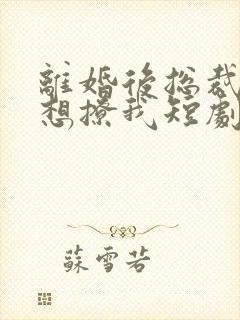 離婚後總裁
想撩我短劇
蘇雪若